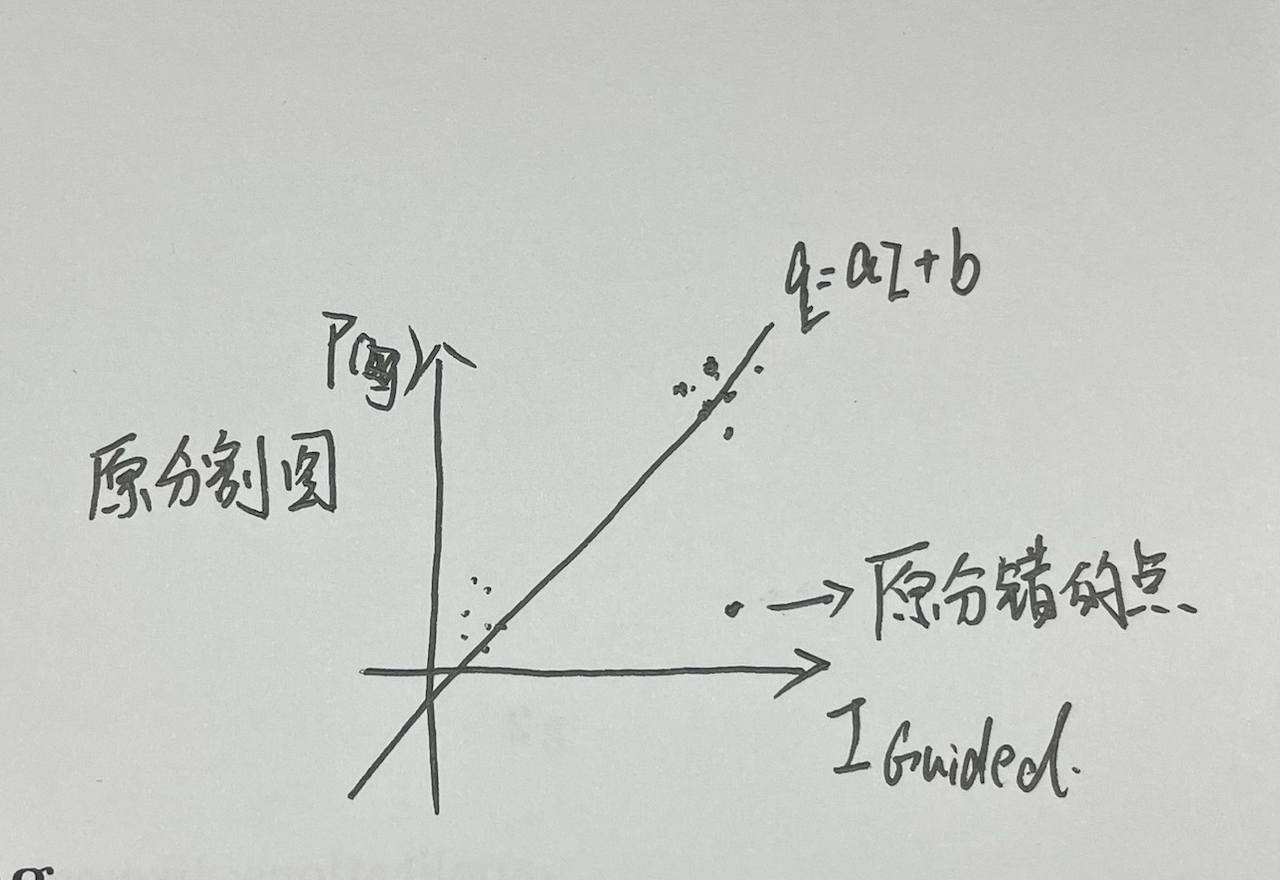 q=aI+b
P( )
原分割图
原分错的点
I Guided.